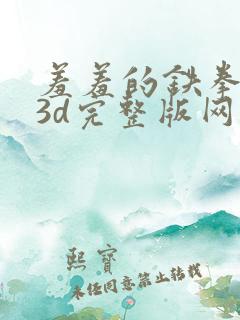 羞羞的铁拳
3d完整版网
熙宝
未经同意禁止转载